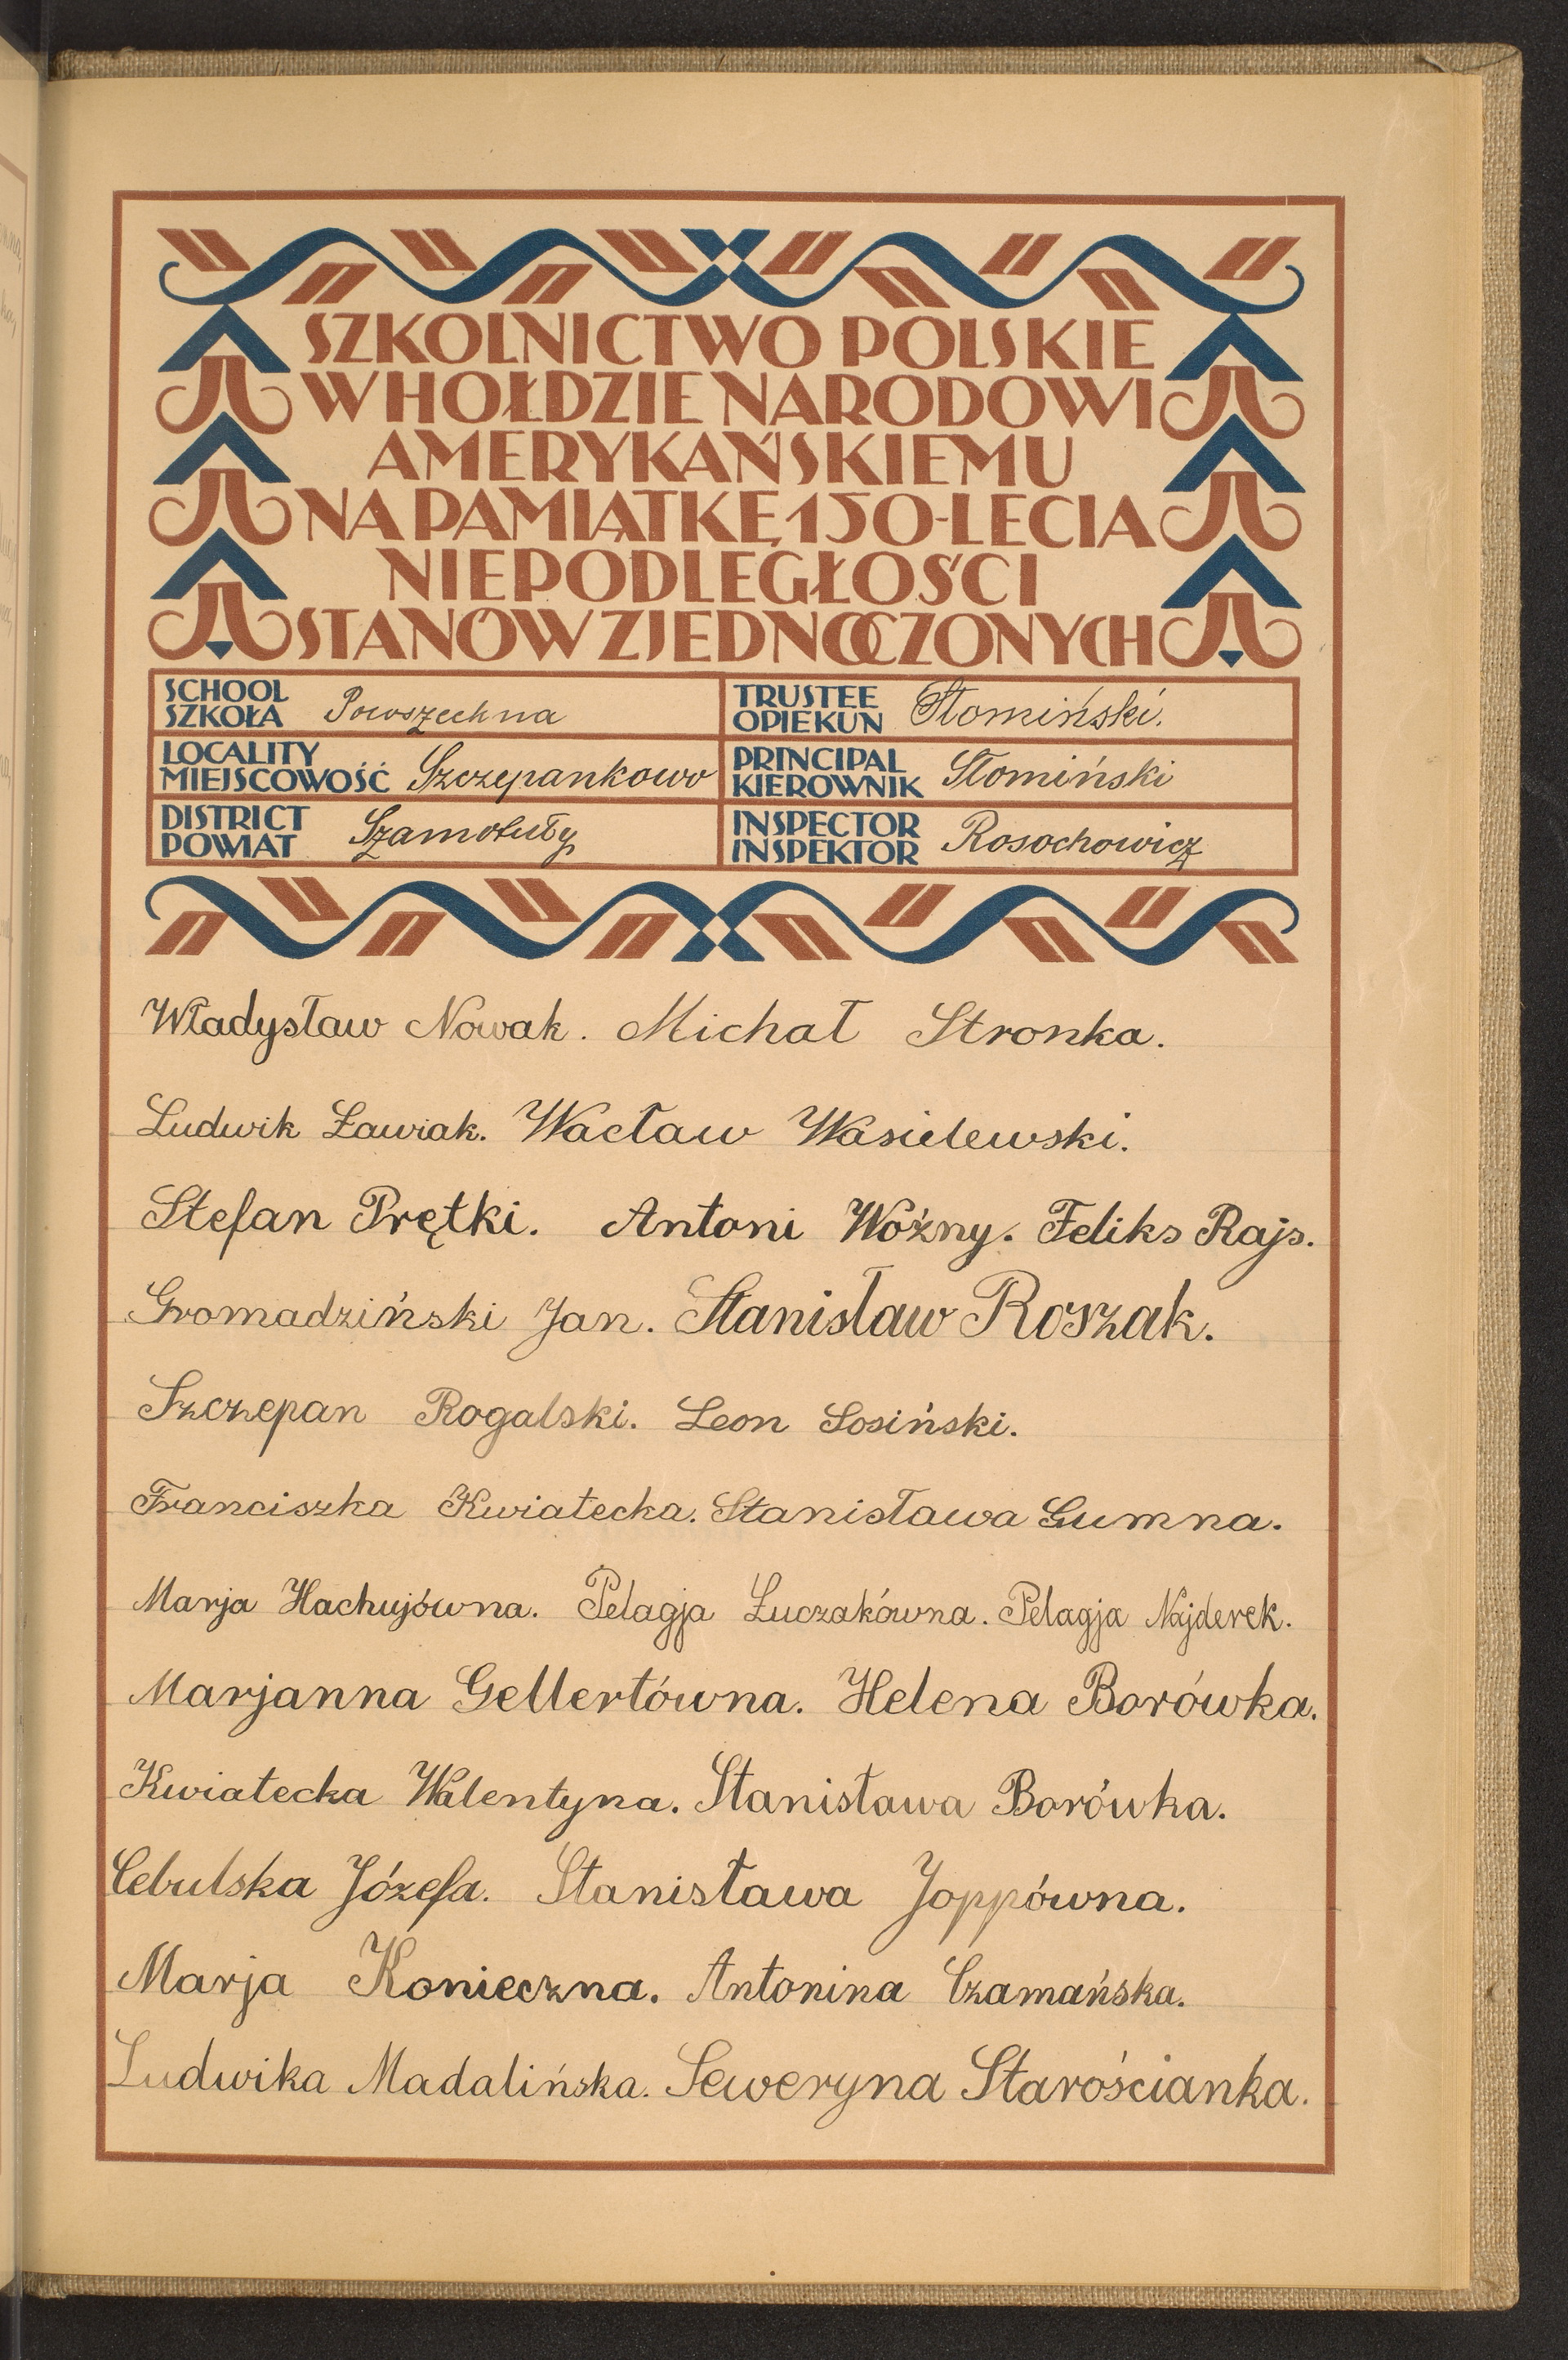 SZKOLNICTWO POLSKIE
W HOŁDZIE NARODOWI
AMERYKAŃSKIEMU
NA PAMIĄTKĘ 150-LECIA
NIEPODLEGŁOŚCI
STANÓW ZJEDNOCZONYCH
SCHOOL
SZKOŁA Powszechna
TRUSTEE
OPIEKUN Słomiński.
LOCALITY
MIEJSCOWOŚĆ Szczepankowo
PRINCIPAL
KIEROWNIK Słomiński
DISTRICT
POWIAT Szamotuły
INSPECTOR
INSPEKTOR Rosochowicz
Władysław Nowak. Michał Stronka.
Ludwik Ławiak. Wacław Wasielewski.
Stefan Prętki. Antoni Woźny. Feliks Rajs.
Gromadziński Jan. Stanisław Roszak.
Szczepan Rogalski. Leon Łosiński.
Franciszka Kwiatecka. Stanisława Gumna.
Marja Hachujówna. Pelagja Łuczakówna. Pelagja Najderek.
Marjanna Gellertówna. Helena Borówka.
Kwiatecka Walentyna. Stanisława Borówka.
Cebulska Józefa. Stanisława Joppówna.
Marja Konieczna. Antonina Czamańska.
Ludwika Madalińska. Seweryna Starościanka.